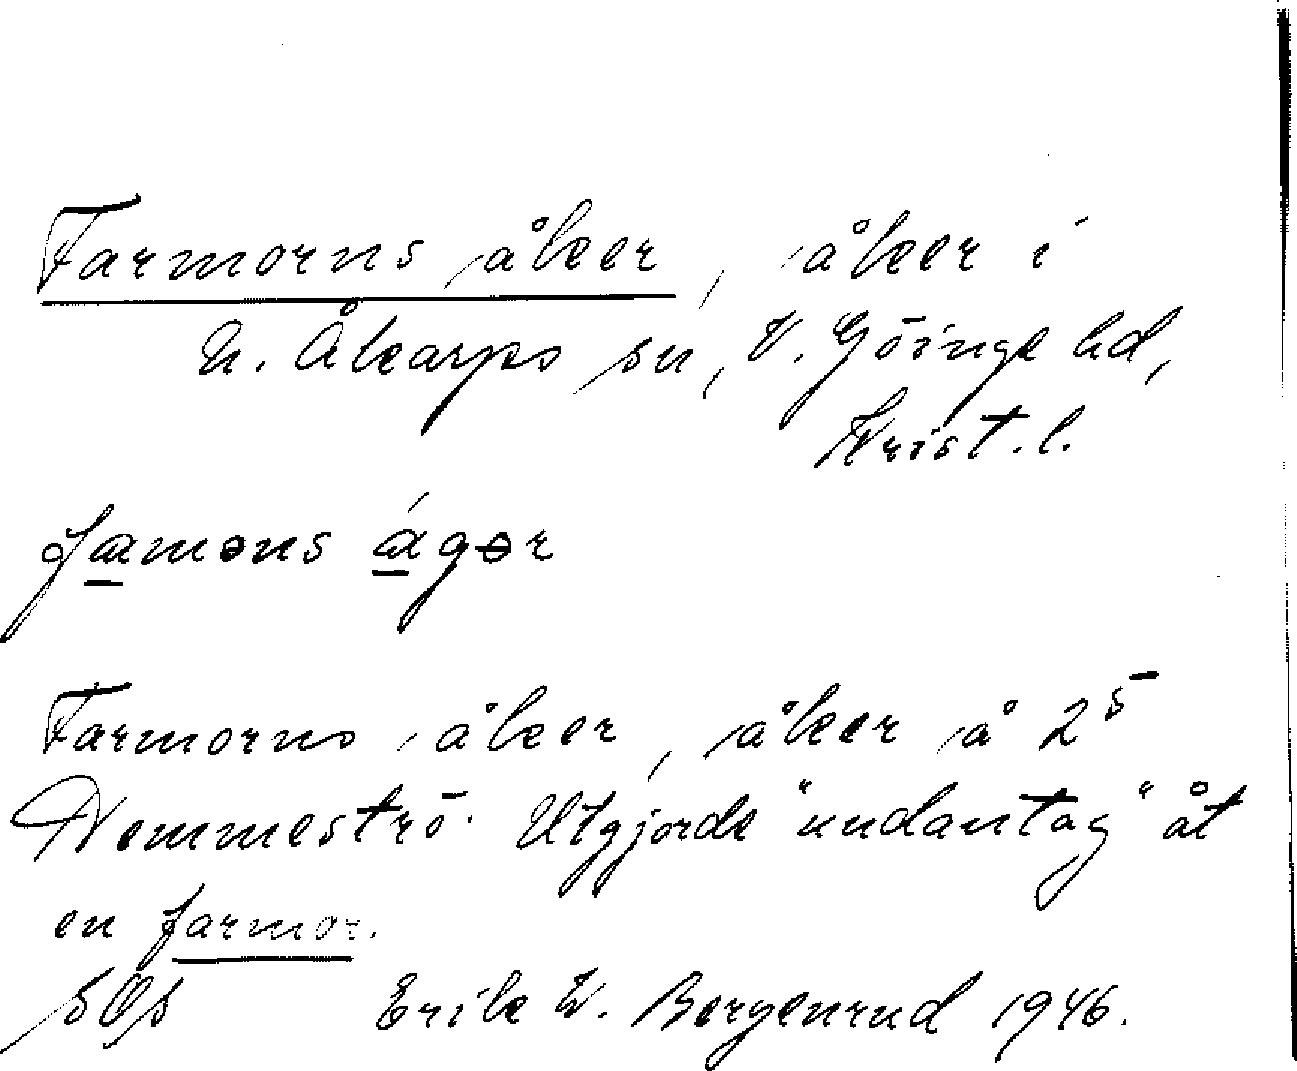 Farmorns åker, åker i
N. Åkarps sn, V. Göinge hd,
Krist. l.
famons ågər
Farmorns åker, åker å 2⁵
Nemmeströ. Utgjorde "undantag" åt
en farmor.
Erik W. Bergenrud 1946.